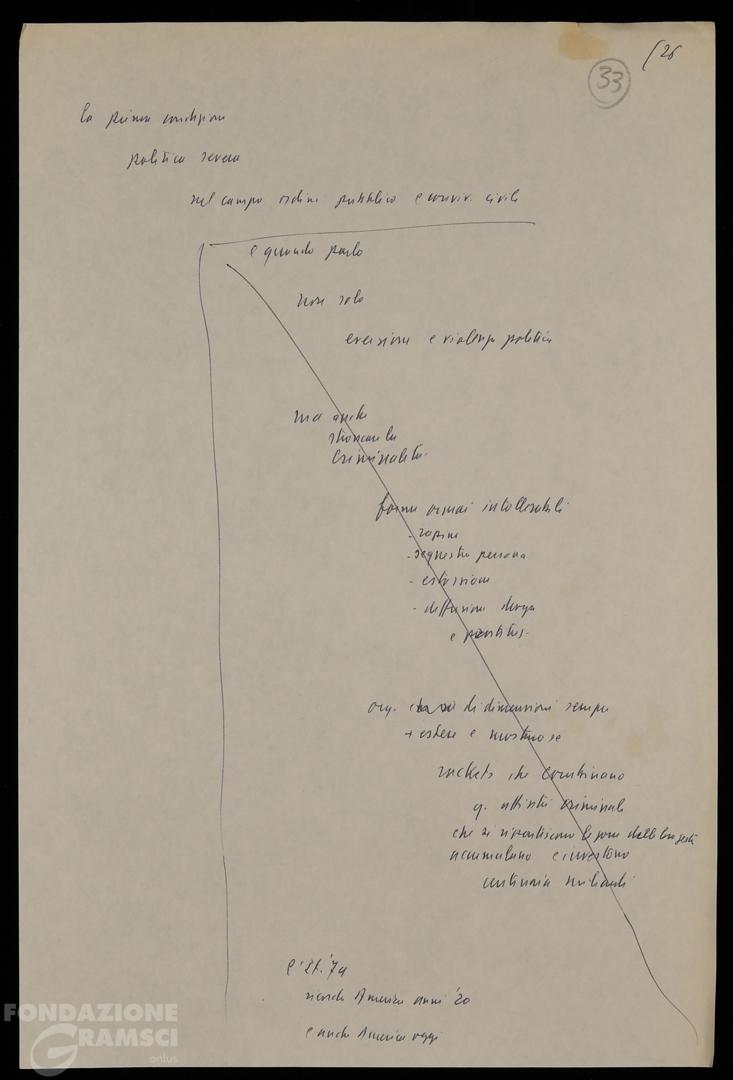 (26
33
la prima condizione
politica severa
nel campo ordine pubblico e conviv. civile
e quando parlo
non solo
eversione e violenza politica
ma anche
stroncare la
criminalità.
forme ormai intollerabili
- rapine
- sequestri persona
- estorsione
- diffusione droga
e prostituz.
org. di dimensioni sempre
+ estese e mostruose
rackets che combinano
q. attività criminale
che si ripartiscono le zone delle loro gesta
accumulano e investono
centinaia miliardi
l'It. '79
ricorda America anni '20
e anche America oggi
FONDAZIONE
GRAMSCI
onlus